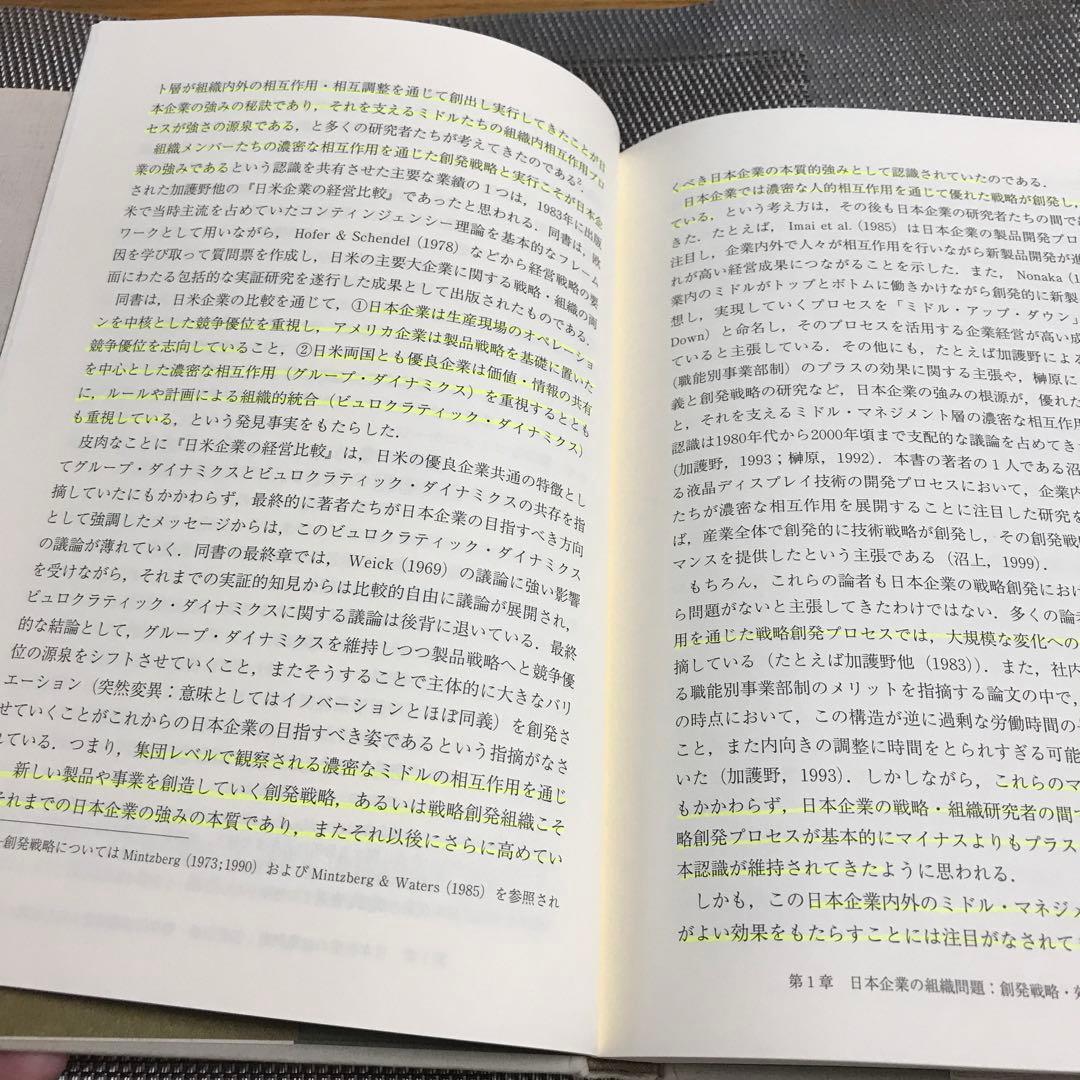 ト層が組織内外の相互作用・相互調整を通じて創出し実行してきたことが日
本企業の強みの秘訣であり，それを支えるミドルたちの組織内相互作用プロ
セスが強さの源泉である，と多くの研究者たちが考えてきたのである².
組織メンバーたちの濃密な相互作用を通じた創発戦略と実行こそが日本企
業の強みであるという認識を共有させた主要な業績の１つは，1983年に出版
された加護野他の『日米企業の経営比較』であったと思われる．同書は，欧
米で当時主流を占めていたコンティンジェンシー理論を基本的なフレーム
ワークとして用いながら，Hofer & Schendel (1978) などから経営戦略の要
因を学び取って質問票を作成し，日米の主要大企業に関する戦略・組織の両
面にわたる包括的な実証研究を遂行した成果として出版されたものである．
同書は，日米企業の比較を通じて，①日本企業は生産現場のオペレーショ
ンを中核とした競争優位を重視し，アメリカ企業は製品戦略を基礎に置いた
競争優位を志向していること，②日米両国とも優良企業は価値・情報の共有
を中心とした濃密な相互作用（グループ・ダイナミクス）を重視するととも
に，ルールや計画による組織的統合（ビュロクラティック・ダイナミクス）
も重視している，という発見事実をもたらした．
皮肉なことに『日米企業の経営比較』は，日米の優良企業共通の特徴とし
てグループ・ダイナミクスとビュロクラティック・ダイナミクスの共存を指
摘していたにもかかわらず，最終的に著者たちが日本企業の目指すべき方向
として強調したメッセージからは，このビュロクラティック・ダイナミクス
の議論が薄れていく．同書の最終章では，Weick (1969) の議論に強い影響
を受けながら，それまでの実証的知見からは比較的自由に議論が展開され，
ビュロクラティック・ダイナミクスに関する議論は後背に退いている．最終
的な結論として，グループ・ダイナミクスを維持しつつ製品戦略へと競争優
位の源泉をシフトさせていくこと，またそうすることで主体的に大きなバリ
エーション（突然変異：意味としてはイノベーションとほぼ同義）を創発さ
せていくことがこれからの日本企業の目指すべき姿であるという指摘がなさ
れている．つまり，集団レベルで観察される濃密なミドルの相互作用を通じ
新しい製品や事業を創造していく創発戦略，あるいは戦略創発組織こそ
それまでの日本企業の強みの本質であり，またそれ以後にさらに高めてい
創発戦略については Mintzberg (1973;1990) および Mintzberg & Waters (1985) を参照され
くべき日本企業の本質的強みとして認識されていたのである．
日本企業では濃密な人的相互作用を通じて優れた戦略が創発し，
ている，という考え方は，その後も日本企業の研究者たちの間で
きた．たとえば，Imai et al. (1985) は日本企業の製品開発プロ
注目し，企業内外で人々が相互作用を行いながら新製品開発が進
れが高い経営成果につながることを示した．また，Nonaka (1
業内のミドルがトップとボトムに働きかけながら創発的に新製
想し，実現していくプロセスを「ミドル・アップ・ダウン」
Down) と命名し，そのプロセスを活用する企業経営が高い成
ていると主張している．その他にも，たとえば加護野による
（職能別事業部制）のプラスの効果に関する主張や，榊原に
義と創発戦略の研究など，日本企業の強みの根源が，優れた
と，それを支えるミドル・マネジメント層の濃密な相互作用
認識は1980年代から2000年頃まで支配的な議論を占めてき
（加護野，1993；榊原，1992）．本書の著者の１人である沼
る液晶ディスプレイ技術の開発プロセスにおいて，企業内
たちが濃密な相互作用を展開することに注目した研究を
ば，産業全体で創発的に技術戦略が創発し，その創発戦
マンスを提供したという主張である（沼上，1999）．
もちろん，これらの論者も日本企業の戦略創発におけ
ら問題がないと主張してきたわけではない．多くの論
用を通じた戦略創発プロセスでは，大規模な変化への
摘している（たとえば加護野他（1983））．また，社内
る職能別事業部制のメリットを指摘する論文の中で，
の時点において，この構造が逆に過剰な労働時間の
こと，また内向きの調整に時間をとられすぎる可能
いた（加護野，1993）．しかしながら，これらのマ
もかかわらず，日本企業の戦略・組織研究者の間で
略創発プロセスが基本的にマイナスよりもプラス
本認識が維持されてきたように思われる．
しかも，この日本企業内外のミドル・マネジメ
がよい効果をもたらすことには注目がなされて
第１章　日本企業の組織問題：創発戦略・